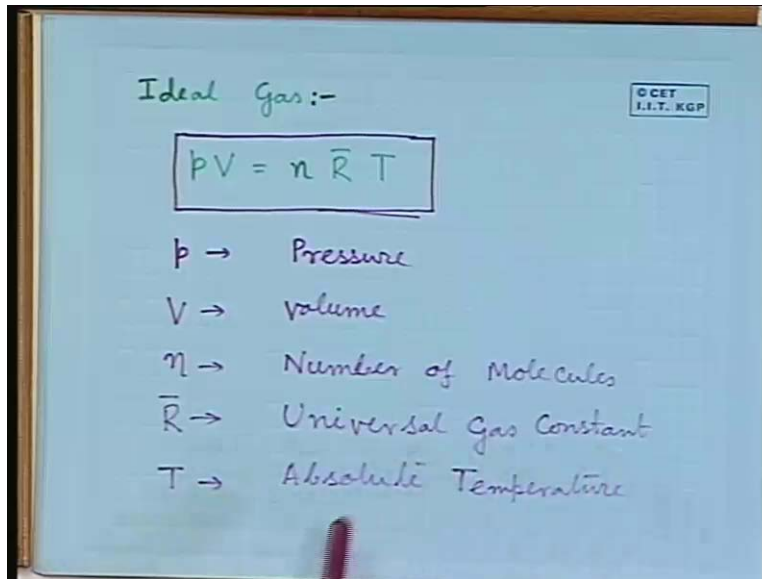 Ideal Gas:-
© CET
I.I.T. KGP
pV = n R̄ T
p → Pressure
V → volume
n → Number of Molecules
R̄ → Universal Gas Constant
T → Absolute Temperature